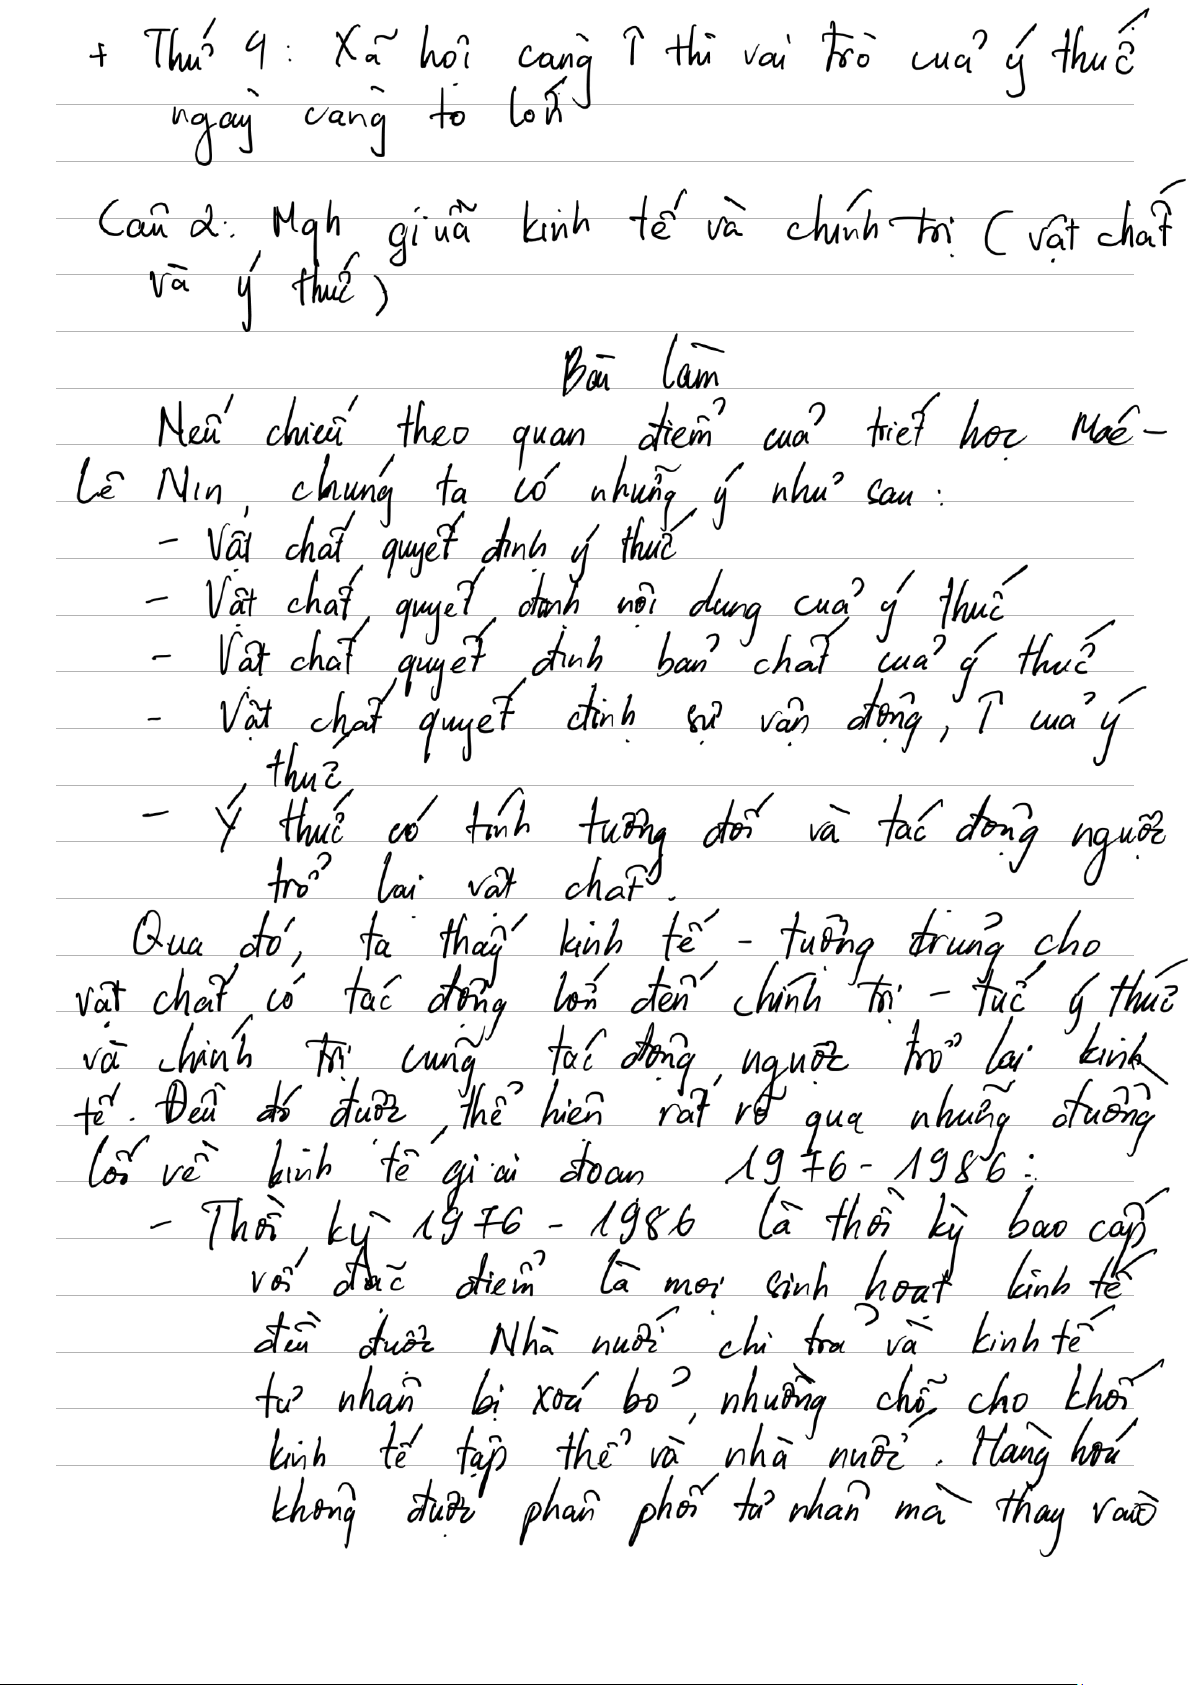 + Thứ 4: Xã hội càng ↑ thì vai trò của ý thức
ngày càng to lớn
Câu 2: Mqh giữa kinh tế và chính trị (vật chất
và ý thức)
Bài làm
Nếu chiếu theo quan điểm của triết học Mác-
Lê Nin, chúng ta có những ý như sau:
- Vật chất quyết định ý thức
- Vật chất quyết định nội dung của ý thức
- Vật chất quyết định bản chất của ý thức
- Vật chất quyết định sự vận động, ↑ của ý
thức
- Ý thức có tính tương đối và tác động ngược
trở lại vật chất.
Qua đó, ta thấy kinh tế - tượng trưng cho
vật chất có tác động lớn đến chính trị - tức ý thức
và chính trị cũng tác động ngược trở lại kinh
tế. Điều đó được thể hiện rất rõ qua những đường
lối về kinh tế giai đoạn 1976-1986:
- Thời kỳ 1976 - 1986 là thời kỳ bao cấp
với đặc điểm là mọi sinh hoạt kinh tế
đều được Nhà nước chi trả và kinh tế
tư nhân bị xoá bỏ, nhường chỗ cho khối
kinh tế tập thể và nhà nước. Hàng hoá
không được phân phối tư nhân mà thay vào